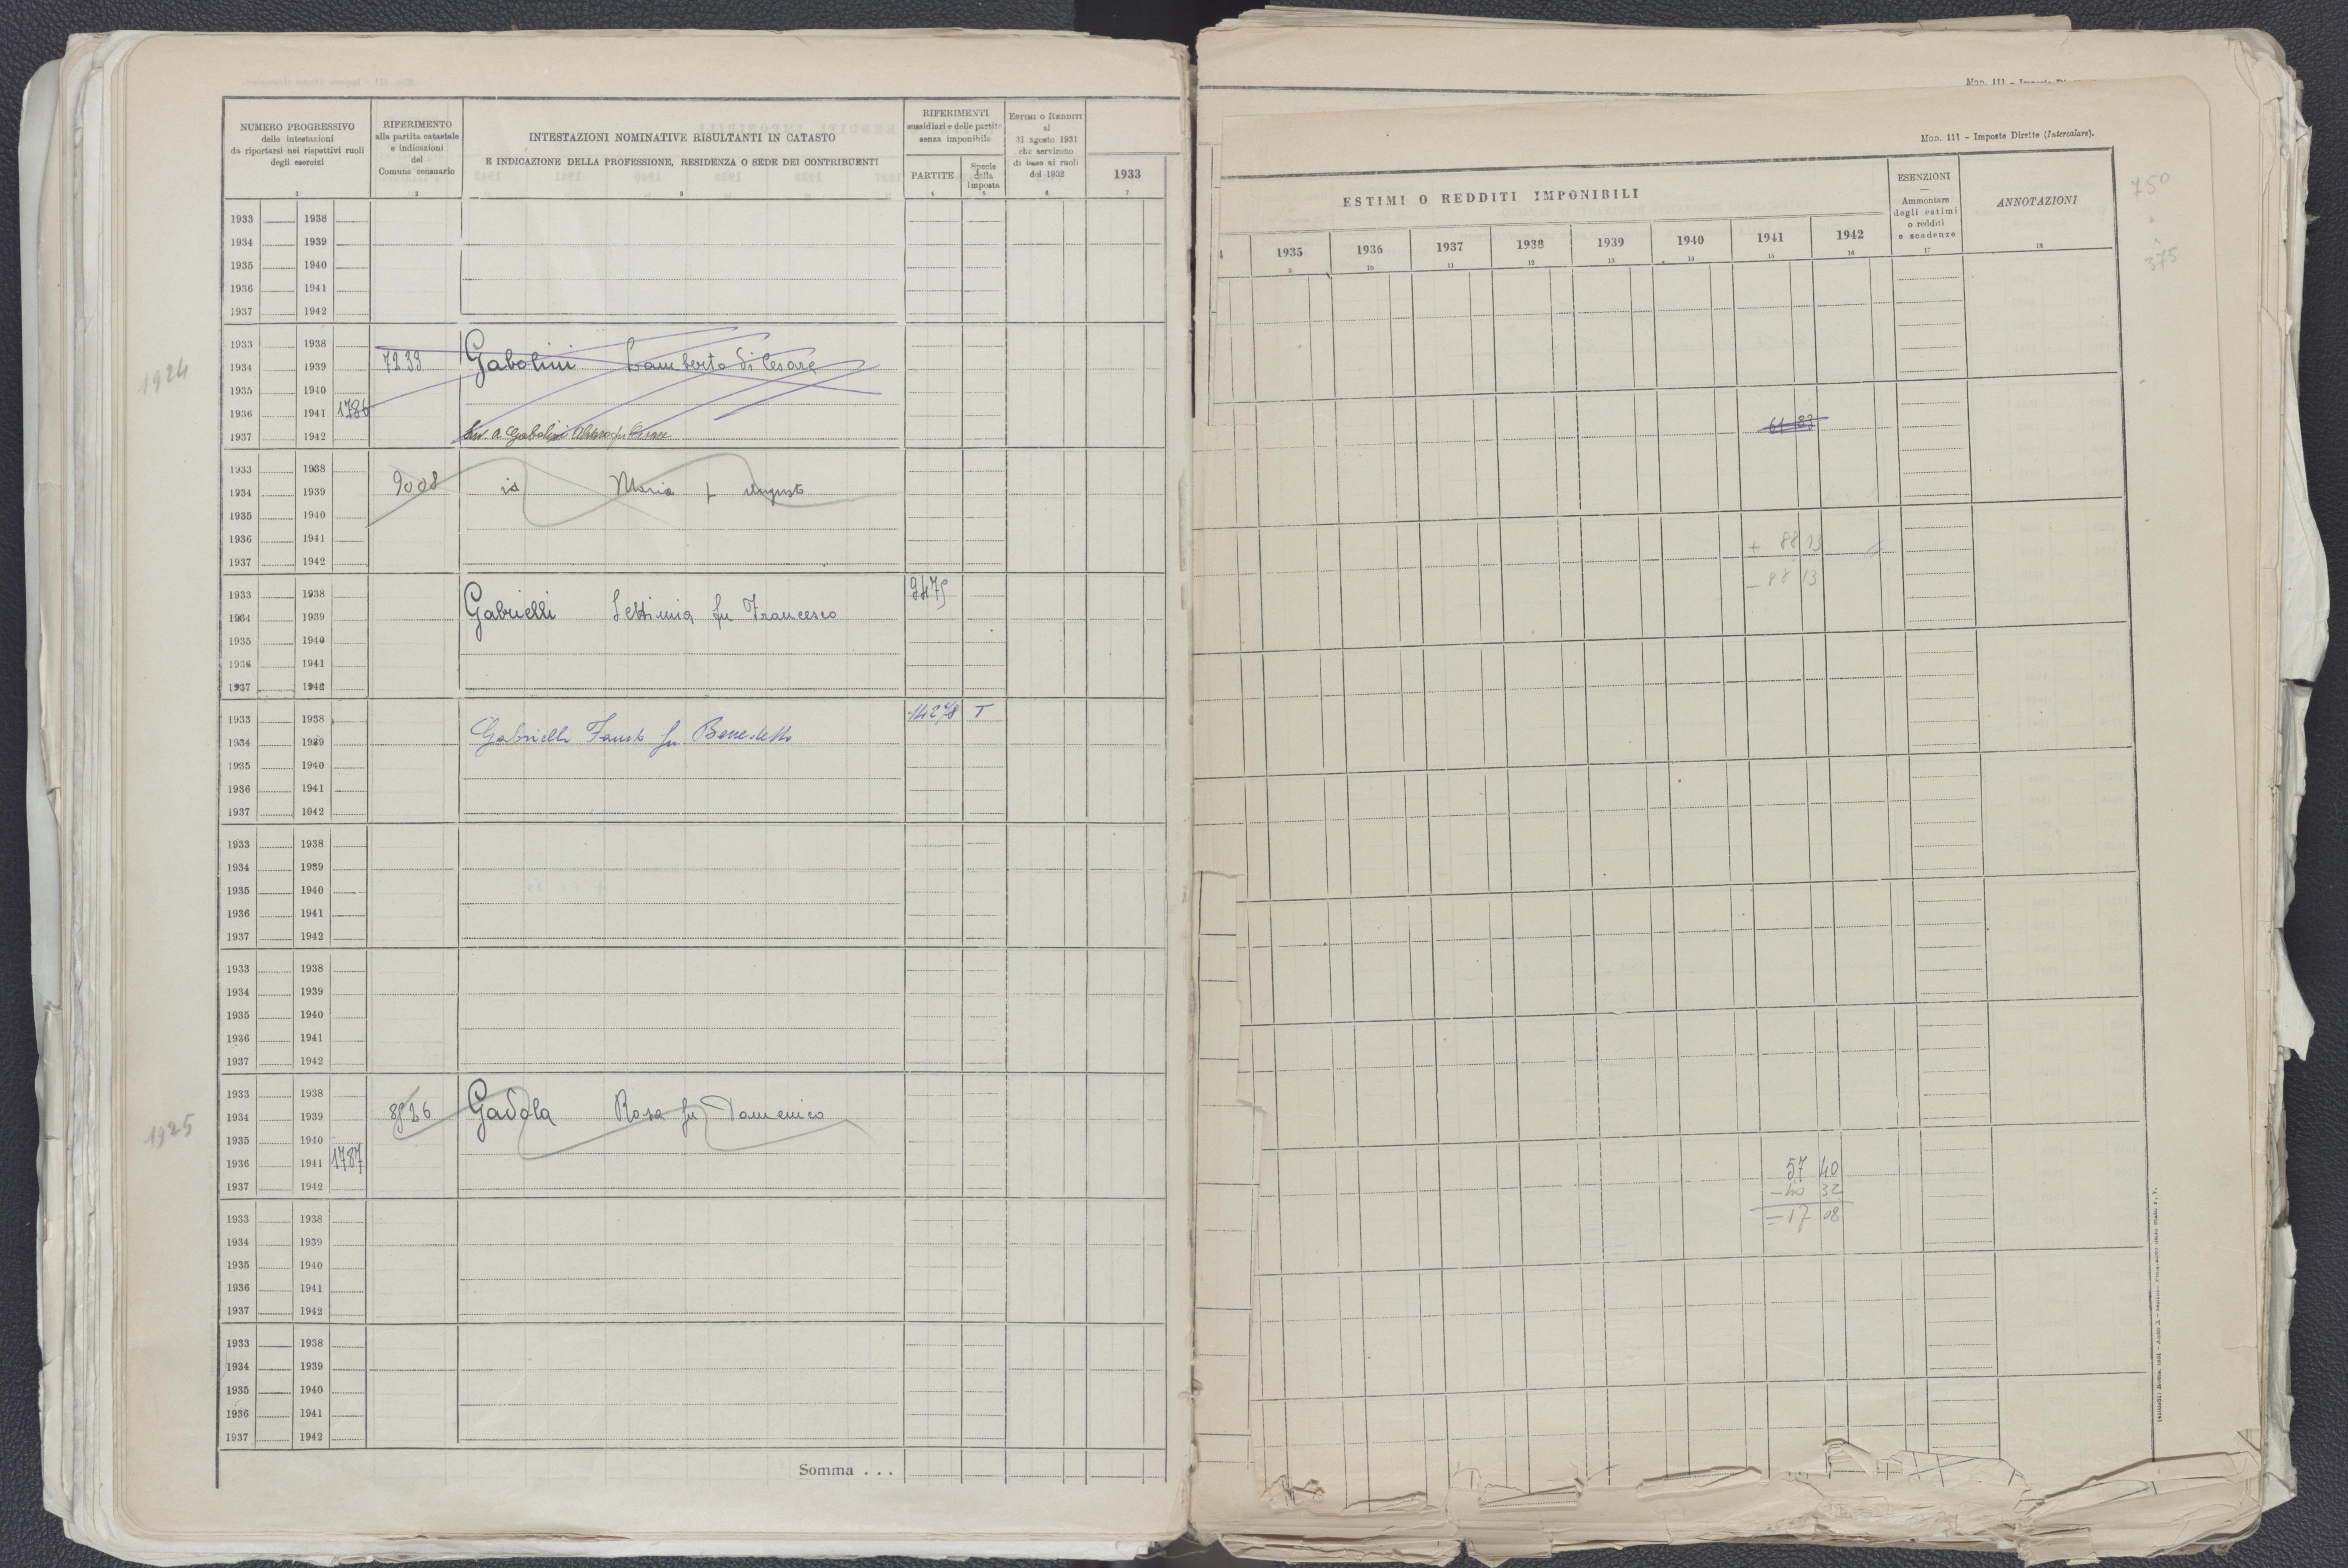 NUMERO PROGRESSIVO
delle intestazioni
da riportarsi nei rispettivi ruoli
degli esercizi
1
RIFERIMENTO
alla partita catastale
e indicazioni
del
Comune censuario
2
INTESTAZIONI NOMINATIVE RISULTANTI IN CATASTO
E INDICAZIONE DELLA PROFESSIONE, RESIDENZA O SEDE DEI CONTRIBUENTI
3
RIFERIMENTI
sussidiari e delle partite
senza imponibile
PARTITE
4
Specie
della
imposta
5
ESTIMI O REDDITI
al
31 agosto 1931
che servirono
di base ai ruoli
del 1932
6
1933
7
1933 1938
1934 1939
1935 1940
1936 1941
1937 1942
1924
1933 1938
1934 1939 7239 Gabolini Lamberto di Cesare
1935 1940
1936 1941 1786
1937 1942
1933 1938
1934 1939 9008 id Maria f Augusto
1935 1940
1936 1941
1937 1942
1933 1938 9475
1934 1939 Gabrielli Settimia fu Francesco
1935 1940
1936 1941
1937 1942
1933 1938 14278 T
1934 1939 Gabrielli Fausto fu Benedetto
1935 1940
1936 1941
1937 1942
1933 1938
1934 1939
1935 1940
1936 1941
1937 1942
1933 1938
1934 1939
1935 1940
1936 1941
1937 1942
1925
1933 1938
1934 1939 8926 Gadola Rosa fu Domenico
1935 1940
1936 1941 1787
1937 1942
1933 1938
1934 1939
1935 1940
1936 1941
1937 1942
1933 1938
1934 1939
1935 1940
1936 1941
1937 1942
Somma . . .
Mod. 111 - Imposte Dirette (Intercalare).
ESTIMI O REDDITI IMPONIBILI
1935
9
1936
10
1937
11
1938
12
1939
13
1940
14
1941
15
1942
16
ESENZIONI
—
Ammontare
degli estimi
o redditi
e scadenze
17
ANNOTAZIONI
18
750
375
61 83
+ 88 13
- 88 13
57 40
- 40 32
= 17 08